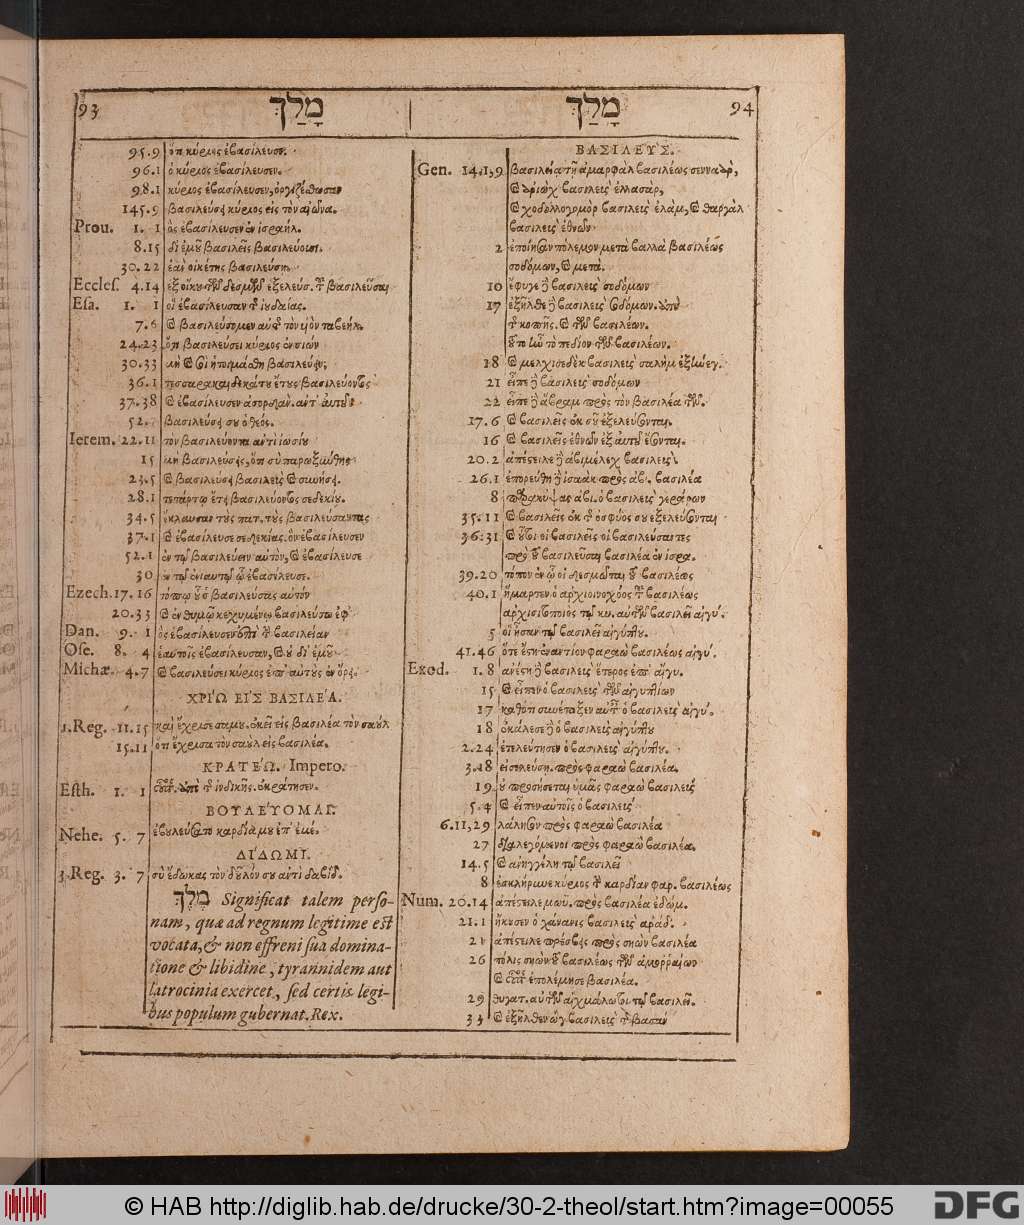 93 מָלַךְ
95.9 ὅτι κύριος ἐβασίλευσεν.
96.1 ὁ κύριος ἐβασίλευσεν.
98.1 κύριος ἐβασίλευσεν, ὀργιζέσθωσαν
145.9 βασιλεύσει κύριος εἰς τὸν αἰῶνα.
Prou. 1. 1 ὃς ἐβασίλευσεν ἐν ἰσραήλ.
8.15 δι' ἐμοῦ βασιλεῖς βασιλεύουσι.
30.22 ἐὰν οἰκέτης βασιλεύσῃ.
Eccles. 4.14 ἐξ οἴκου τῶν δεσμίων ἐξελεύσ. τοῦ βασιλεῦσαι
Esa. 1. 1 οἳ ἐβασίλευσαν τῆς ἰουδαίας.
7.6 καὶ βασιλεύσομεν αὐτῆς τὸν υἱὸν ταβεήλ.
24.23 ὅτι βασιλεύσει κύριος ἐν σιὼν
30.33 μὴ καὶ σοὶ ἡτοιμάσθη βασιλεύειν;
36.1 τεσσαρακαιδεκάτου ἔτους βασιλεύοντος
37.38 καὶ ἐβασίλευσεν ἀσορδὰν. αντ' αὐτοῦ
52.7 βασιλεύσει σου ὁ θεός.
Ierem. 22.11 τὸν βασιλεύοντα αντὶ ἰωσίου
15 μὴ βασιλεύσεις, ὅτι σὺ παροξυύθης
23.5 καὶ βασιλεύσει βασιλεὺς καὶ συνήσει.
28.1 τετάρτῳ ἔτει βασιλεύοντος σεδεκίου.
34.5 ἔκλαυσαν τοὺς πατ. τοὺς βασιλεύσαντας
37.1 καὶ ἐβασίλευσε σεδεκίας. ὃν ἐβασίλευσεν
52.1 ἐν τῷ βασιλεύειν αὐτὸν, καὶ ἐβασίλευσε
30 ἐν τῷ ἐνιαυτῷ ᾧ ἐβασίλευσε.
Ezech. 17.16 τόπῳ οὗ ὁ βασιλεύσας αὐτόν
20.33 καὶ ἐν θυμῷ κεχυμένῳ βασιλεύσω ἐφ'
Dan. 9. 1 ὃς ἐβασίλευσεν ἐπὶ τὴν βασιλείαν
Ose. 8. 4 ἑαυτοῖς ἐβασίλευσαν, καὶ οὐ δι' ἐμοῦ
Michæ. 4.7 καὶ βασιλεύσει κύριος ἐπ' αὐτοὺς ἐν ὄρει.
ΧΡΙΏ ΕΙΣ ΒΑΣΙΛΕΆ.
1.Reg. 11.15 καὶ ἔχρισε σαμου. ἐκεῖ εἰς βασιλέα τὸν σαοὺλ
15.11 ὅτι ἔχρισα τὸν σαοὺλ εἰς βασιλέα.
ΚΡΑΤΕΏ. Impero.
Esth. 1. 1 ἀπὸ τῆς ἰνδικῆς. ἐκράτησεν.
ΒΟΥΛΕΎΟΜΑΙ.
Nehe. 5. 7 ἐβουλεύσατο καρδία μου ἐπ' ἐμέ.
ΔΊΔΩΜΙ.
3.Reg. 3. 7 σὺ ἔδωκας τὸν δοῦλόν σου αντὶ δαβίδ.
מֶלֶךְ Significat talem perso-
nam, quæ ad regnum legitime est
vocata, & non effreni sua domina-
tione & libidine, tyrannidem aut
latrocinia exercet, sed certis legi-
bus populum gubernat. Rex.
מָלַךְ 94
ΒΑΣΙΛΕΥΣ.
Gen. 14.1,9 βασιλείᾳ τῇ ἀμαρφὰλ βασιλέως σενναὰρ,
καὶ ἀριὼχ βασιλεὺς ἐλλασὰρ,
καὶ χοδολλογομὸρ βασιλεὺς ἐλὰμ, καὶ θαργὰλ
βασιλεὺς ἐθνῶν
2 ἐποίησαν πόλεμον μετὰ βαλλὰ βασιλέως
σοδόμων, καὶ μετὰ.
10 ἔφυγε δὲ βασιλεὺς σοδόμων
17 ἐξῆλθε δὲ βασιλεὺς σοδόμων. ἀπὸ
τῆς κοπῆς. καὶ τῶν βασιλέων.
τοῦτο ἦν τὸ πεδίον τῶν βασιλέων.
18 καὶ μελχισεδὲκ βασιλεὺς σαλὴμ ἐξήνεγ.
21 εἶπε δὲ βασιλεὺς σοδόμων
22 εἶπε δὲ ἄβραμ πρὸς τὸν βασιλέα τῶν.
17.6 καὶ βασιλεῖς ἐκ σοῦ ἐξελεύσονται.
16 καὶ βασιλεῖς ἐθνῶν ἐξ αὐτοῦ ἔσονται.
20.2 ἀπέστειλε δὲ ἀβιμέλεχ βασιλεὺς.
26.1 ἐπορεύθη δὲ ἰσαὰκ πρὸς ἀβι. βασιλέα
8 παρακύψας αβι. ὁ βασιλεὺς γεράρων
35.11 καὶ βασιλεῖς ἐκ τῆς ὀσφύος σου ἐξελεύσονται
36.31 καὶ οὗτοι οἱ βασιλεῖς οἱ βασιλεύσαντες
πρὸ τοῦ βασιλεῦσαι βασιλέα ἐν ἰσρα.
39.20 τόπον ἐν ᾧ οἱ δεσμῶται τοῦ βασιλέως
40.1 ἥμαρτεν ὁ ἀρχιοινοχόος τοῦ βασιλέως
αρχισιτοποιὸς τῷ κυ. αὐτῶν βασιλεῖ αἰγύ.
5 οἳ ἦσαν τῷ βασιλεῖ αἰγύπτου.
41.46 ὅτε ἔστη ἐναντίον φαραὼ βασιλέως αἰγύ.
Exod. 1.8 ανέστη δὲ βασιλεὺς ἕτερος ἐπ' αἴγυ.
15 καὶ εἶπεν ὁ βασιλεὺς τῶν αἰγυπτίων
17 καθότι συνέταξεν αὐταῖς ὁ βασιλεὺς αἰγύ.
18 ἐκάλεσε δὲ ὁ βασιλεὺς αἰγύπτου
2.24 ἐτελεύτησεν ὁ βασιλεὺς αἰγύπτου.
3.18 εἰσελεύσῃ. πρὸς φαραὼ βασιλέα.
19 οὐ προσήσεται ὑμᾶς φαραὼ βασιλεὺς
5.4 καὶ εἶπεν αὐτοῖς ὁ βασιλεὺς
6.11,29 λάλησον πρὸς φαραὼ βασιλέα
27 διαλεγόμενοι πρὸς φαραὼ βασιλέα.
14.5 καὶ ανηγγέλη τῷ βασιλεῖ
8 ἐσκλήρυνε κύριος τὴν καρδίαν φαρ. βασιλέως
Num. 20.14 ἀπέστειλε μωϋ. πρὸς βασιλέα ἐδώμ.
21.1 ἤκουσεν ὁ χάνανις βασιλεὺς αράδ.
21 απέστειλε πρέσβεις πρὸς σηὼν βασιλέα
26 πόλις σηὼν τοῦ βασιλέως τῶν ἀμορραίων
ἐπολέμησε βασιλέα.
29 θυγατ. αὐτῶν αἰχμάλωτοι τῷ βασιλεῖ.
33 καὶ ἐξῆλθεν ὢγ βασιλεὺς τῆς βασὰν
© HAB http://diglib.hab.de/drucke/30-2-theol/start.htm?image=00055
DFG